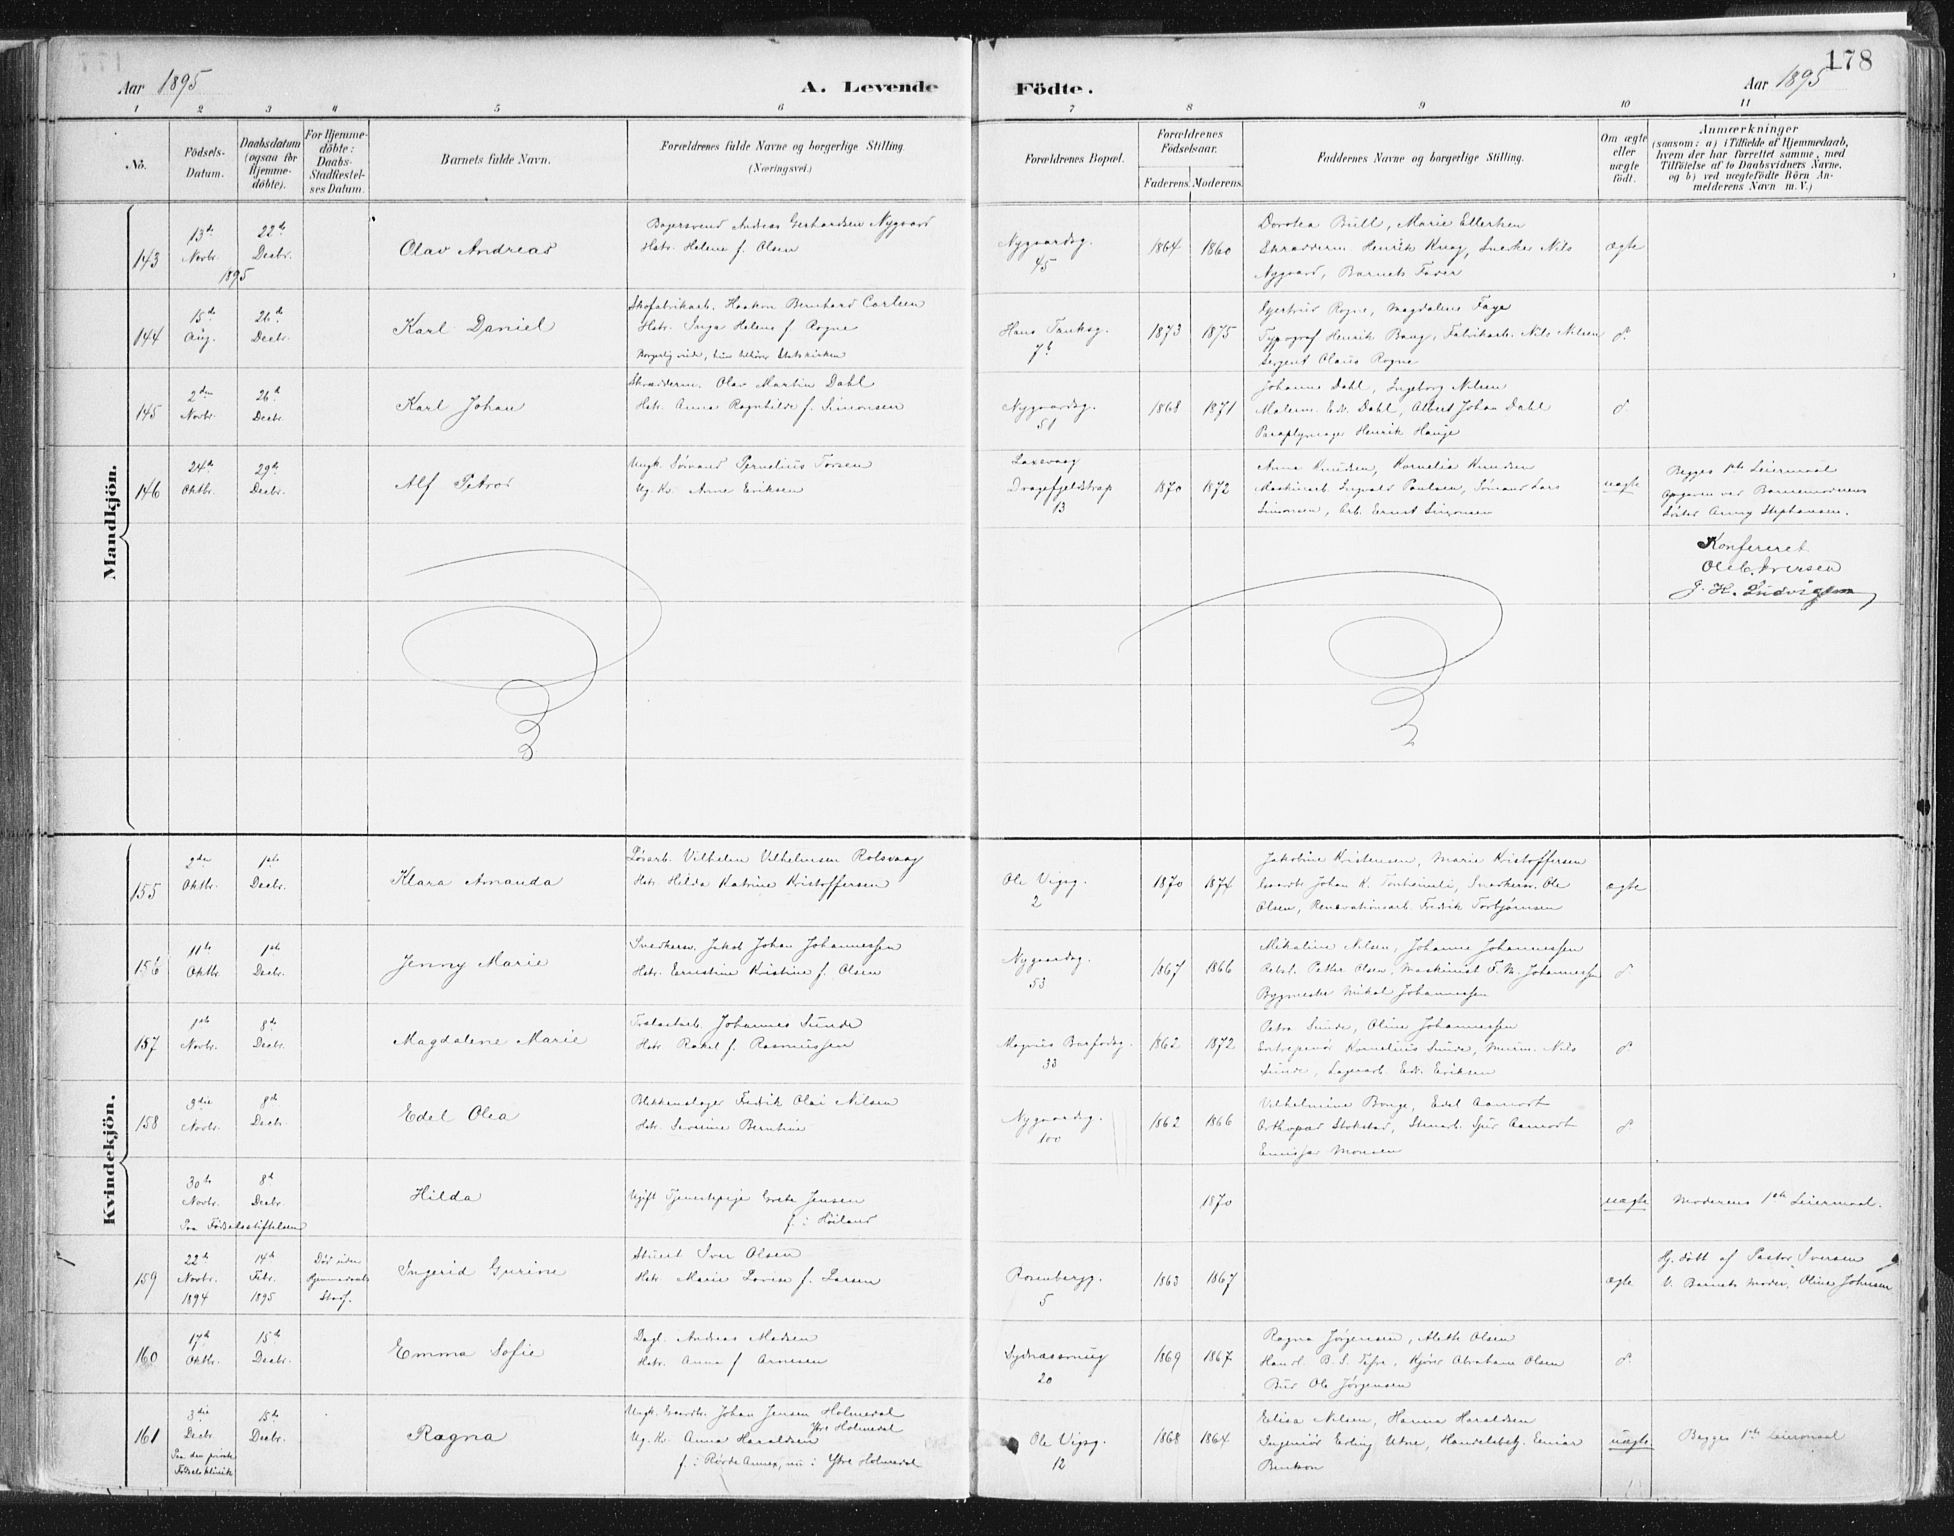 178
Aar 1895
A. Levende
Födte.
Aar 1895
1 2 3 4 5 6 7 8 9 10 11
No.
Födsels-Datum.
Daabsdatum (ogsaa for Hjemme-döbte).
For Hjemme-döbte: Daabs-Stadfæstel-ses Datum.
Barnets fulde Navn.
Forældrenes fulde Navne og borgerlige Stilling. (Næringsvei.)
Forældrenes Bopæl.
Forældrenes Födselsaar.
Faderens. Moderens.
Faddernes Navne og borgerlige Stilling.
Om ægte eller uægte födt.
Anmærkninger
(saasom: a) i Tilfælde af Hjemmedaab, hvem der har forrettet samme, med Tilföielse af to Daabsvidners Navne, og b) ved uægtefödte Börn An-melderens Navn m. V.)
Mandkjön.
143
13de Novbr. 1895
22de Decbr.
Olav Andreas
Bagersvend Andreas Gerhardsen Nygaard
Hstr. Helene f. Olsen
Nygaardsg. 45
1864 1860
Dorotea Bull, Marie Ellerhen
Skrædderm. Henrik Krag, Snedker Nils
Nygaard, Barnets Fader
ægte
144
15de Aug.
26de Decbr.
Karl Daniel
Skofabrikarb. Haakon Bernhard Carlsen
Hstr. Inga Helene f. Rogne
Borgerlig viede, hun tilhører Statskirken
Hans Tanksg. 7b
1873 1875
Gjertrud Rogne, Magdalene Faye
Typograf Henrik Bang, Fabrikarb. Nils Nilsen
Sergent Claus Rogne
d.
145
2den Novbr.
26de Decbr.
Karl Johan
Skrædderm. Olav Martin Dahl
Hstr. Anna Ragnhilde f. Simonsen
Nygaardsg. 51
1868 1871
Johanne Dahl, Ingeborg Nilsen
Malerm. Edv. Dahl, Albert Johan Dahl
Paraplymager Henrik Hauge
d.
146
24de Oktbr.
29de Decbr.
Alf Petrod
Ungk. Sømand Pernelius Torsen
Ug. Kv. Anne Eriksen
Laxevaag
Dragefjeldstrap 13
1870 1872
Anna Knudsen, Kornelia Knudsen
Maskinarb. Ingvald Paulsen, Sømand Lars
Simonsen, Arb. Ernst Simonsen
uægte
Begges 1ste Leiermaal
Opgaven ved Barnemoderens
Søster Anny Stephansen.
Konfereret
Ole C. Iversen
J. H. Ludvigsen
Kvindekjön.
155
2den Oktbr.
1ste Decbr.
Klara Amanda
Løsarb. Vilhelm Vilhelmsen Rotsvaag
Hstr. Hilda Katrine Kristoffersen
Ole Vigsg. 2
1870 1874
Jakobine Kristensen, Marie Kristoffersen
Gaardb. Johan K. Tonheimsli, Snedkersv. Ole
Olsen, Renovationsarb. Fredrik Torbjørnsen
ægte
156
11te Oktbr.
1ste Decbr.
Jenny Marie
Snedkersv. Jakob Johan Johannessen
Hstr. Ernestine Kristine f. Olsen
Nygaardsg. 53
1867 1866
Mikaline Nilsen, Johanne Johannessen
Rebsl. Petter Olsen, Maskinist F. M. Johannessen
Bygmester Mikal Johannessen
d
157
1ste Novbr.
8de Decbr.
Magdalene Marie
Trælastarb. Johannes Sunde
Hstr. Rakel f. Rasmussen
Magnus Barfodsg. 33
1862 1872
Petra Sunde, Oline Johannessen
Entreprenør Kornelius Sunde, Murm. Nils
Sunde, Lagerarb. Edv. Eriksen
d.
158
3die Novbr.
8de Decbr.
Edel Olea
Blikkenslager Fredrik Olai Nilsen
Hstr. Severine Berntine
Nygaardsg. 100
1862 1866
Vilhelmine Bonge, Edel Aamodt
Orthopæd Stokstad, Stenarb. Sjur Aamodt
Emissær Monsen
d.
30te Novbr.
8de Decbr.
Paa Fødselsstiftelsen
Hilda
Ugift Tjenestepige Grete Jensen
f. i Høiland
1870
uægte
Moderens 1ste Leiermaal.
159
22de Novbr. 1894
14de Febr. 1895
Død uden Hjemmedaabs Stadf.
Ingerid Gurine
Stuert Iver Olsen
Hstr. Marie Lovise f. Larsen
Rosenbergg. 5
1863 1867
ægte
Hj. døbt af Pastor Iversen
V. Barnets Moder, Oline Johnsen
160
17de Oktbr.
15de Decbr.
Emma Sofie
Dagl. Andreas Madsen
Hstr. Anna f. Arnesen
Sydnæssmug 20
1869 1867
Ragna Jørgensen, Aleth Olsen
Handl. B. S. Tefre, Kjører Abraham Olsen
Bud Ole Jørgensen
d.
161
3die Decbr.
15de Decbr.
Paa den private Fødselsklinik
Ragna
Ungk. Gaardbr. Johan Jensen Holmedal
Ytre Holmedal
Ug. Kv. Anna Haraldsen
f. i Røide Annex, nu i Ytre Holmedal
Ole Vigsg. 12
1868 1864
Elisa Nilsen, Hanna Haraldsen
Ingeniør Erling Utne, Handelsbetj. Einar
Benkon
uægte
Begges 1ste Leiermaal